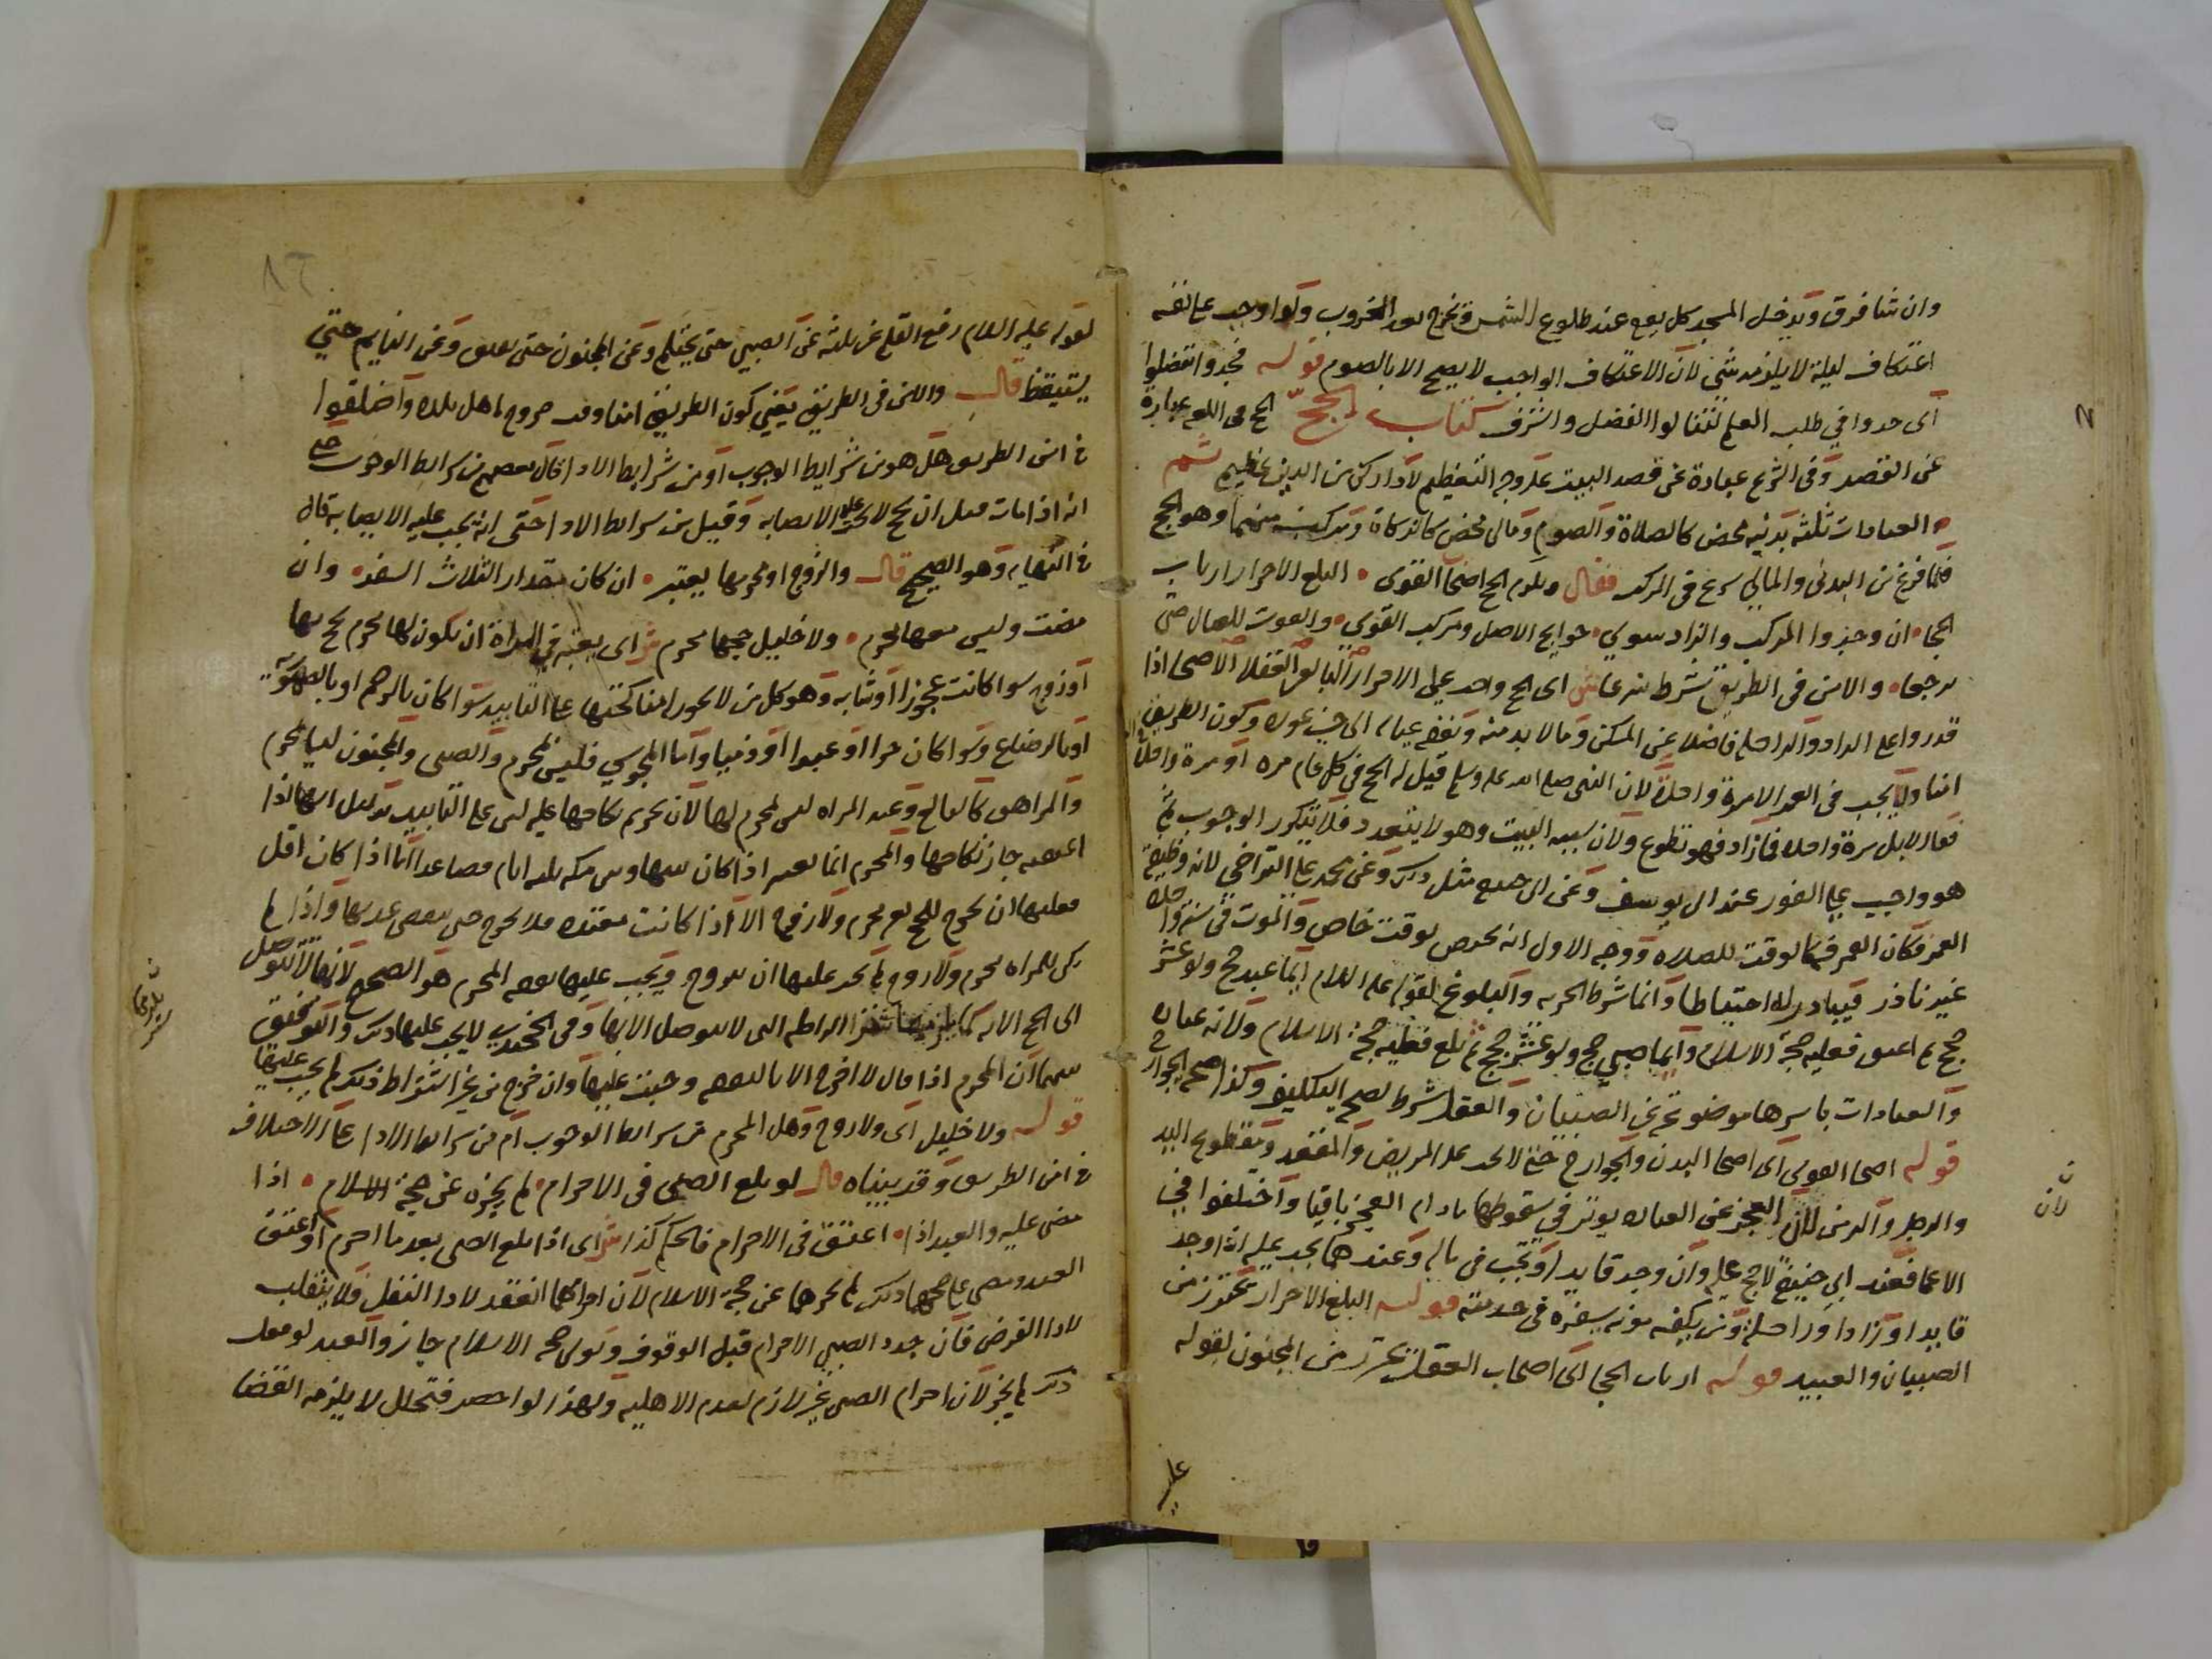 وان شا فرق ويدخل المسجد كل يوم عند طلوع الشمس ويخرج بعد الغروب ولو اوجب على نفسه
اعتكاف ليلة لا يلزمه شي لان الاعتكاف الواجب لا يصح الا بالصوم قوله فجدوا تفضلوا
اى جدوا في طلب العلم لتنالوا الفضل والشرف كتاب الحج الحج فى اللغه عبارة
عن القصد وفى الشرع عبادة عن قصد البيت على وجه التعظيم لادا ركن من الدين عظيم ثم
العبادات ثلثه بدنيه محض كالصلاة والصوم ومالى محض كالزكاة ومركب منهما وهو الحج
فلما فرغ من البدنى والمالى شرع فى المركب فقال ويلزم الحج اصحا القوى البلغ الاحرار ارباب
الحجا ان وجدوا المركب والزاد سوى حوايج الاصل ومركب القوى والقوت للعيال حتى
يرجعا والامن فى الطريق شرط شرعا ش اى الحج واجب على الاحرار البالغ العقلا الاصحا اذا
قدروا على الزاد والراحله فاضلا عن المسكن وما لا بد منه ونفقه عياله الى حين عوده وكون الطريق
امنا ولا يجب فى العمر الا مرة واحدة لان النبى صلى الله عليه وسلم قيل له الحج فى كل عام مره او مرة واحدة
فقال لا بل مرة واحده فما زاد فهو تطوع ولان سببه البيت وهو لا يتعدد فلا يتكرر الوجوب ثم
هو واجب على الفور عند ابى يوسف وعن ابى حنيفه مثل ذلك وعن محمد على التراخي لانه وظيفة
العمر فكان العمر فيه كالوقت للصلاه ووجه الاول انه يختص بوقت خاص والموت فى سنة واحده
غير نادر فيبادر له احتياطا وانما شرط الحريه والبلوغ لقوله عليه السلام ايما عبد حج ولو عشر
حجج ثم اعتق فعليه حجة الاسلام وايما صبي حج ولو عشر حجج ثم بلغ فعليه حجة الاسلام ولانه عباده
والعبادات باسرها موضوعة عن الصبيان والعقل شرط لصحة التكليف وكذا صحة الجوارح
قوله اصحا القوى اى اصحا البدن والجوارح حتى لا يجب على المريض والمقعد ومقطوع اليد
والرجل والزمن لان العجز عن العباده يوثر في سقوطها ما دام العجز باقيا واختلفوا في
الاعما فعند ابى حنيفة لا حج عليه وان وجد قايدا وتجب فى ماله وعندهما يجب عليه اذا وجد
قايدا وزادا وراحلة ومن يكفيه مونه سفره فى خدمته قوله البلغ الاحرار يحترز من
الصبيان والعبيد قوله ارباب الحجا اى اصحاب العقل يحترز من المجنون لقوله
لان
عليه
لقوله عليه السلام رفع القلم عن ثلثه عن الصبي حتى يحتلم وعن المجنون حتى يفيق وعن النايم حتى
يستيقظ قال والامن فى الطريق يعني كون الطريق امنا وقت خروج اهل بلده واختلفوا
فى امن الطريق هل هو من شرايط الوجوب او من شرايط الادا قال بعضهم من شرايط الوجوب حتى
انه اذا مات قبل ان يحج لا يجب عليه الايصا به وقيل من شرايط الادا حتى انه يجب عليه الايصا به قال
فى النهايه وهو الصحيح قال والزوج او محرمها يعتبر ان كان مقدار الثلاث السفر وان
مضت وليس معها محرم ولا خليل حجها محرم ش اى يعتبر في المراة ان يكون لها محرم تحج بها
او زوج سوا كانت عجوزا او شابه وهو كل من لا يجوز له مناكحتها على التابيد سوا كان بالرحم او بالصهريه
او بالرضاع وسوا كان حرا او عبدا او ذميا واما المجوسي فليس بمحرم والصبى والمجنون ليسا بمحرم
والمراهق كالبالغ وعبد المراه ليس بمحرم لها لان تحريم نكاحها عليه ليس على التابيد بدليل انها اذا
اعتقته جاز نكاحها والمحرم انما يعتبر اذا كان بينها وبين مكه ثلثه ايام فصاعدا اما اذا كان اقل
فعليها ان تخرج للحج بغير محرم ولا زوج الا اذا كانت معتده فلا تخرج حتى تنقضى عدتها واذا لم
يكن للمراه محرم ولا زوج لم يجب عليها ان تتزوج ويجب عليها نفقه المحرم هو الصحيح لانها لا تتوصل
الى الحج الا به كما يلزمها شرا الراحله التى لا تتوصل الا بها وفى الخجندى لا يجب عليها ذلك والتوفيق
بينهما ان المحرم اذا قال لا اخرج الا بالنفقه وجبت عليها وان خرج من غير اشتراط ذلك لم يجب عليها
قوله ولا خليل اى ولا زوج وهل المحرم من شرايط الوجوب ام من شرايط الادا على الاختلاف
فى امن الطريق وقد بيناه قال لو بلغ الصبى فى الاحرام لم يجزه عن حجة الاسلام اذا
مضى عليه والعبد اذا اعتق فى الاحرام فالحكم كذا ش اى اذا بلغ الصبى بعد ما احرم او اعتق
العبد ومضى على حجهما ذلك لم يجزهما عن حجة الاسلام لان احرامهما انعقد لادا النفل فلا ينقلب
لادا الفرض فان جدد الصبي الاحرام قبل الوقوف ونوى حجه الاسلام جاز والعبد لو فعل
ذلك لم يجز لان احرام الصبى غير لازم لعدم الاهليه ولهذا لو احصر فتحلل لا يلزمه القضا